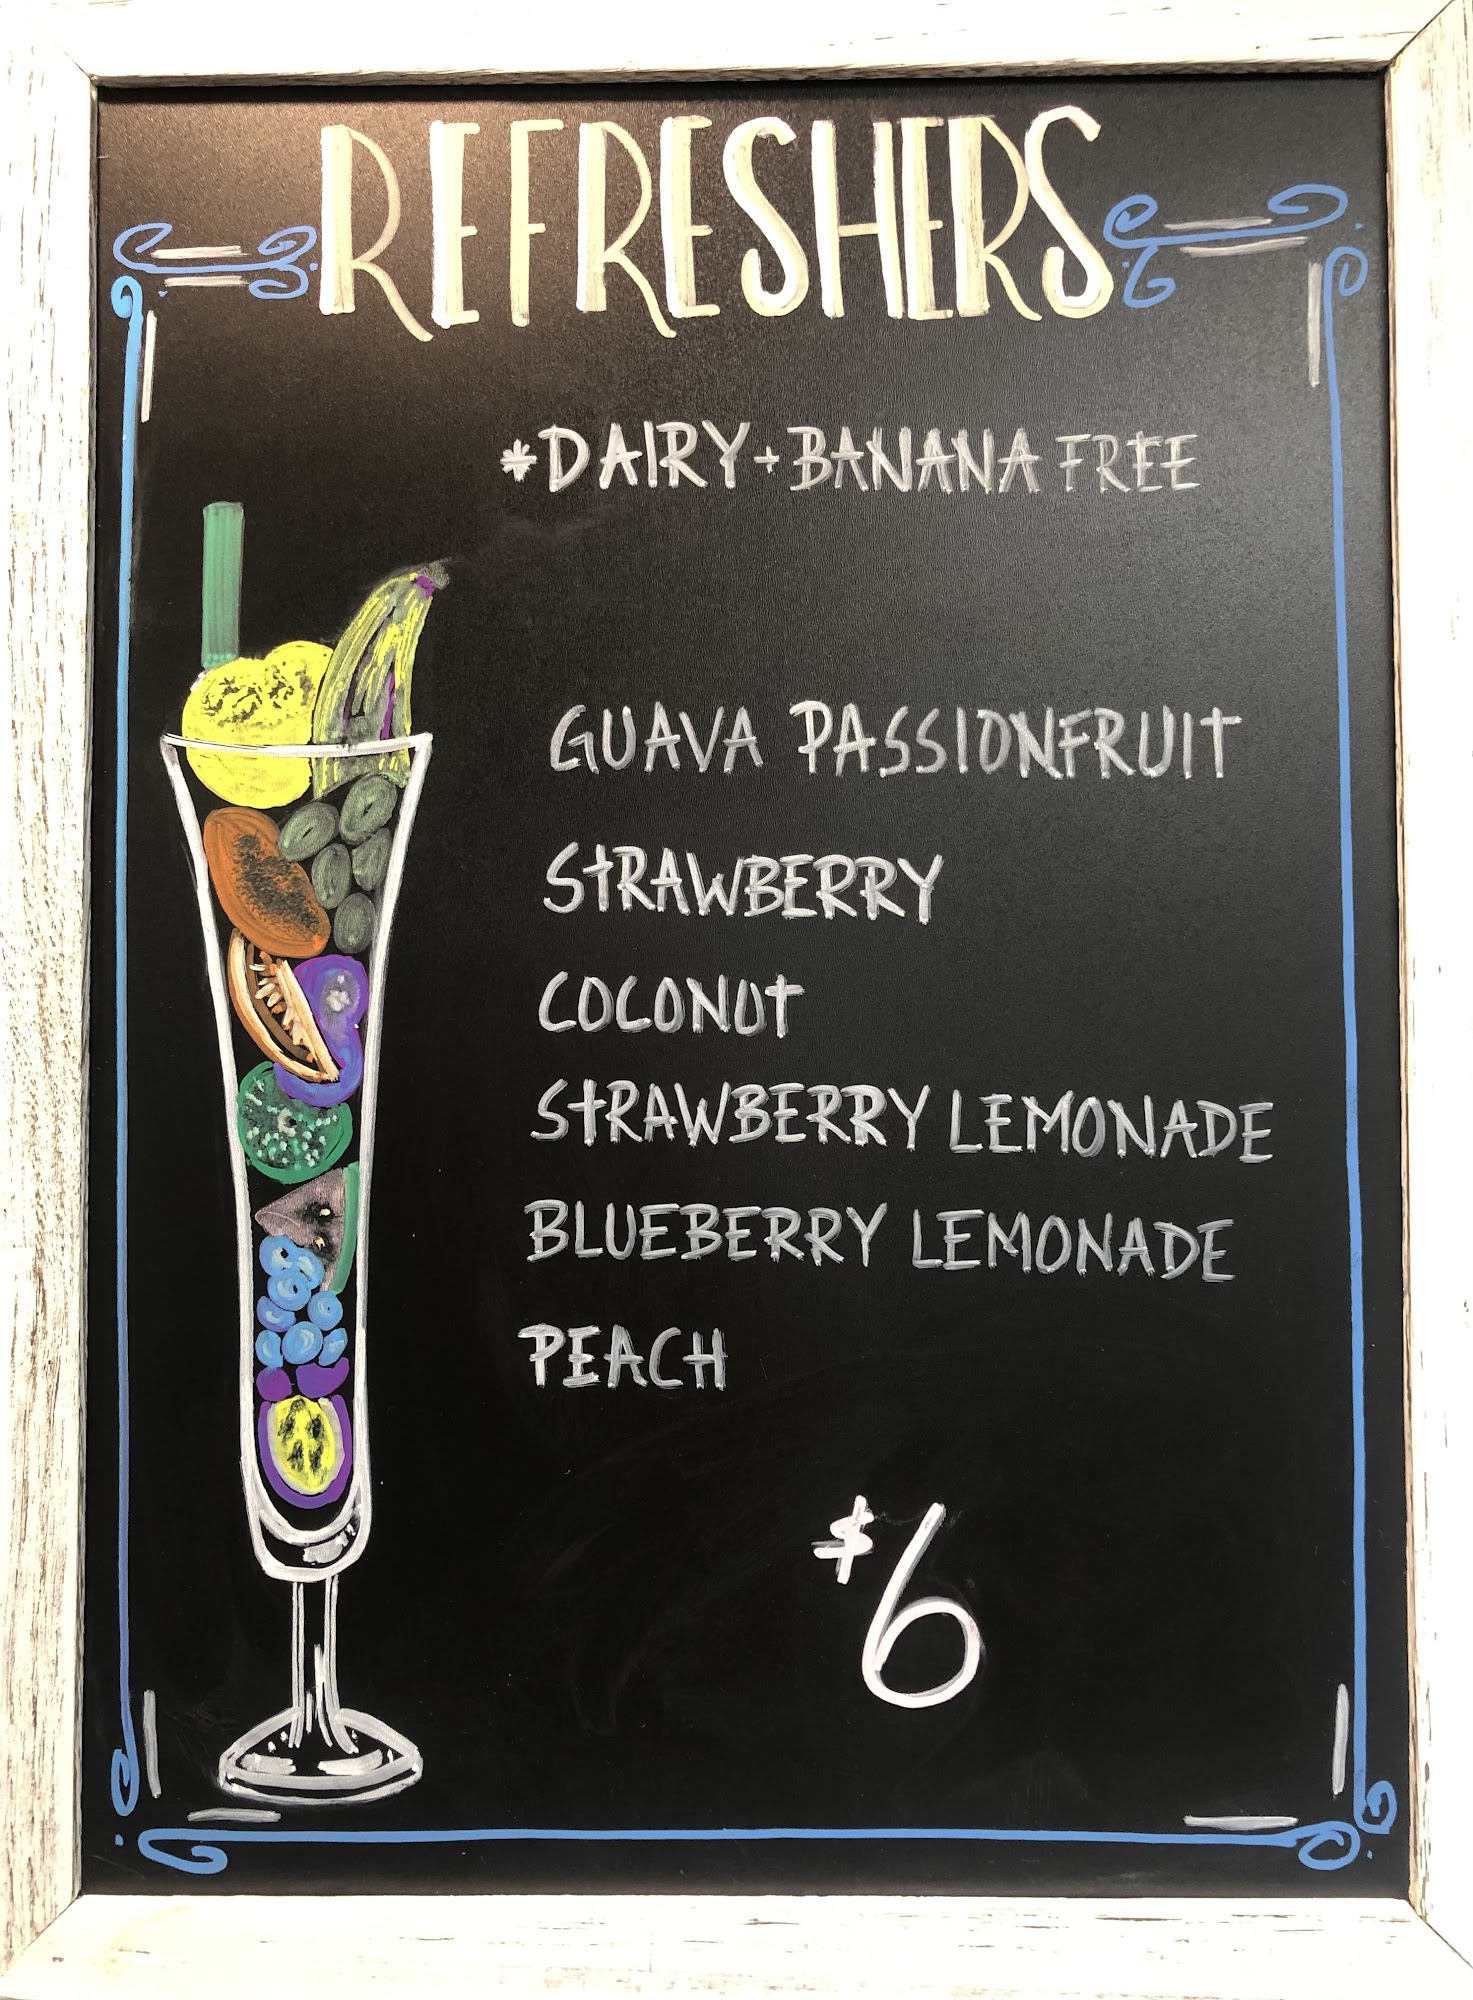 REFRESHERS
*DAIRY + BANANA FREE
GUAVA PASSIONFRUIT
STRAWBERRY
COCONUT
STRAWBERRY LEMONADE
BLUEBERRY LEMONADE
PEACH
$6